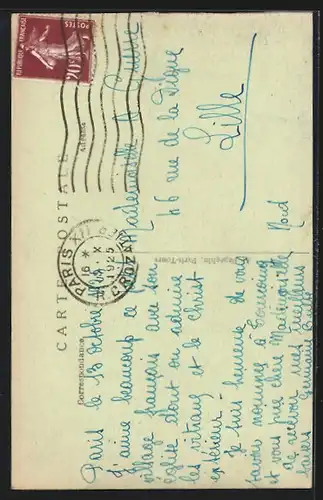 CARTE POSTALE
Correspondance
Adresse
REPUBLIQUE FRANÇAISE
POSTES
20c
PARIS XII
16 *
13 X
1925
R. CROZATIER
Paris le 13 octobre
J'aime beaucoup ce
village français avec son
église dont on admire
les vitraux et le Christ
extérieur.
Je suis heureuse de vous
savoir nommée à Tourcoing
et vous prie chère Mademoiselle
de recevoir mes meilleurs
baisers Germaine
Mademoiselle
46 rue de la Digue
Lille
Nord